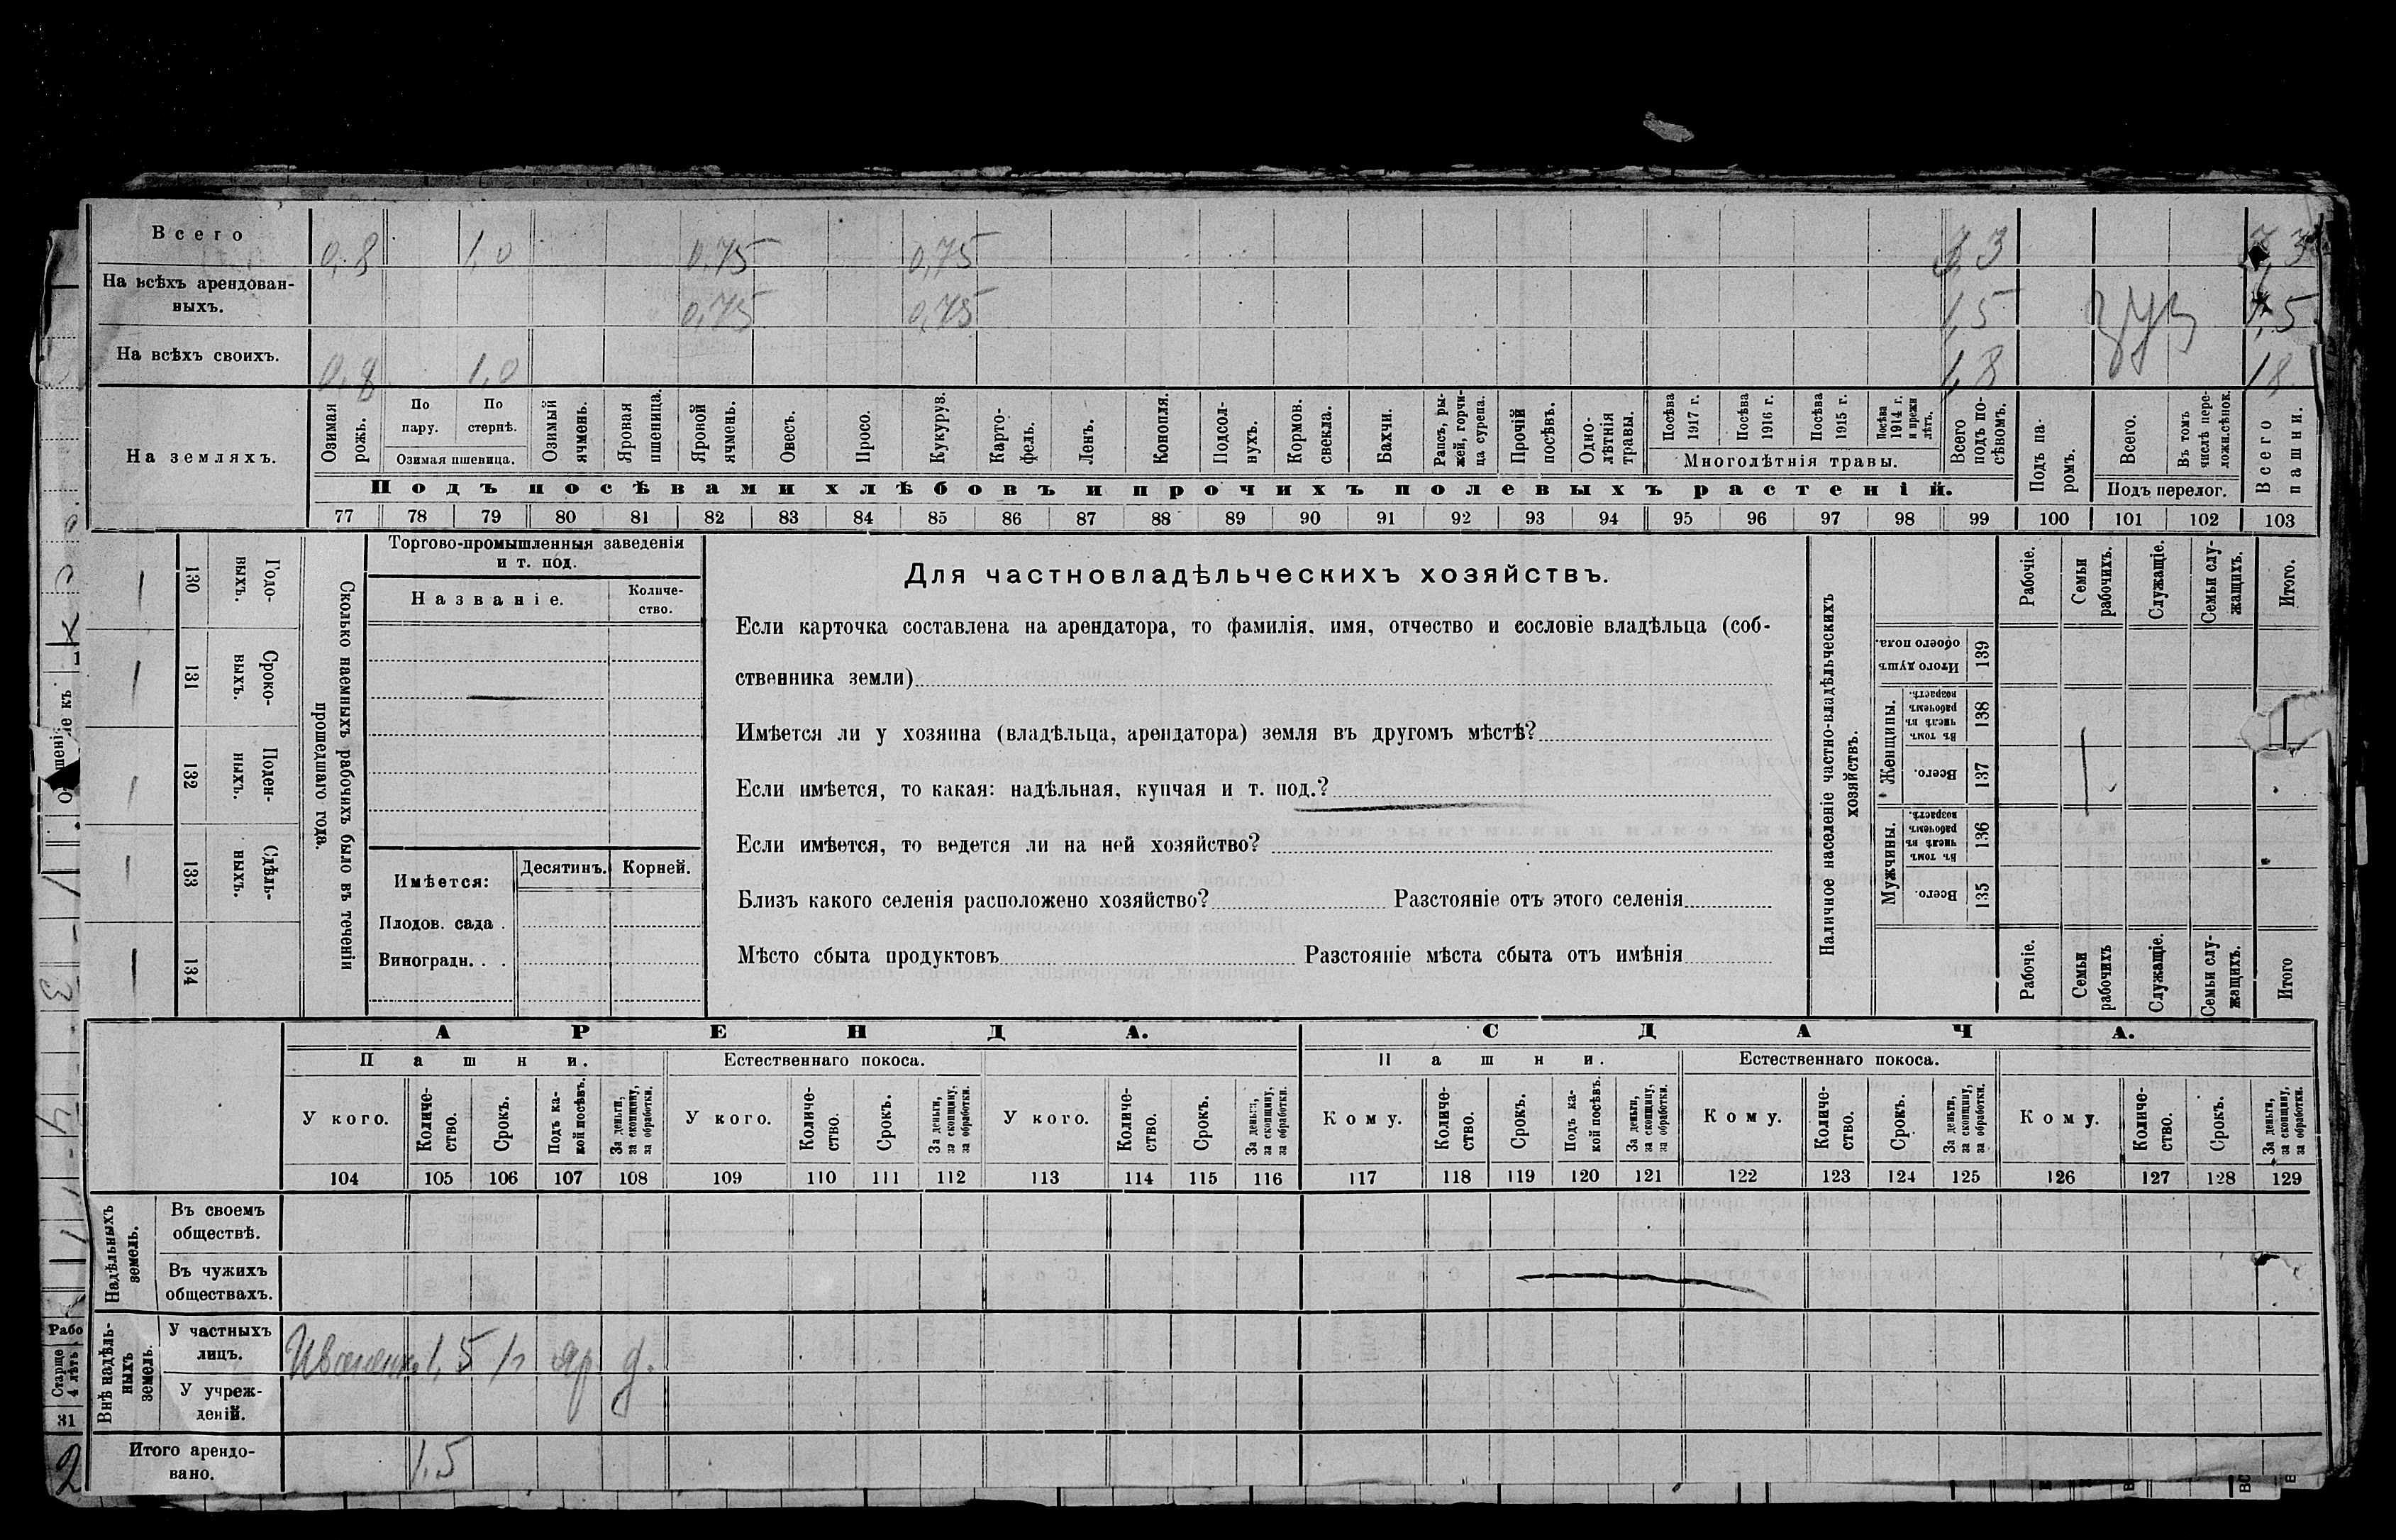 Всего 0,8 1,0 0,75 0,75 3,3 3,3
На всѣхъ арендован-
ныхъ. 0,75 0,75 1,5 1,5
На всѣхъ своихъ. 0,8 1,0 1,8 1,8
На земляхъ.
Озимая рожь.
По пару.
По стернѣ.
Озимая пшеница.
Озимый ячмень.
Яровая пшеница.
Яровой ячмень.
Овесъ.
Просо.
Кукуруз.
Карто-
фель.
Ленъ.
Конопля.
Подсол-
нухъ.
Кормов. свекла.
Бахчи.
Рапсъ, ры-
жей, горчи-
ца сурепа.
Прочій посѣвъ.
Одно-
лѣтнія травы.
Посѣва 1917 г.
Посѣва 1916 г.
Посѣва 1915 г.
Посѣва 1914 г. и прежн лѣтъ.
Многолѣтнія травы.
Всего подъ по-
сѣвомъ.
Подъ па-
ромъ.
Всего.
Въ томъ числѣ пере-
ложн.сѣнок.
Подъ перелог.
Всего пашни.
Подъ посѣвами хлѣбовъ и прочихъ полевыхъ растеній.
77 78 79 80 81 82 83 84 85 86 87 88 89 90 91 92 93 94 95 96 97 98 99 100 101 102 103
130 Годо-
выхъ.
131 Сроко-
выхъ.
132 Поден-
ныхъ.
133 Сдѣль-
ныхъ.
134
Сколько наемныхъ рабочихъ было въ теченіи
прошедшаго года.
Торгово-промышленныя заведенія
и т. под.
Названіе.
Количе-
ство.
Имѣется:
Десятинъ. Корней.
Плодов. сада .
Виноградн. . .
Для частновладѣльческихъ хозяйствъ.
Если карточка составлена на арендатора, то фамилія, имя, отчество и сословіе владѣльца (соб-
ственника земли)
Имѣется ли у хозяина (владѣльца, арендатора) земля въ другомъ мѣстѣ?
Если имѣется, то какая: надѣльная, купчая и т. под.?
Если имѣется, то ведется ли на ней хозяйство?
Близъ какого селенія расположено хозяйство? Разстояніе отъ этого селенія
Мѣсто сбыта продуктовъ Разстояніе мѣста сбыта отъ имѣнія
Наличное населеніе частно-владѣльческихъ
хозяйствъ.
Рабочіе.
Семьи рабочихъ.
Служащіе.
Семьи слу-
жащихъ.
Итого.
Итого душъ обоего пола. 139
Женщины.
Въ томъ числѣ въ рабочемъ возрастѣ. 138
Всего. 137
Мужчины.
Въ томъ числѣ въ рабочемъ возрастѣ. 136
Всего. 135
Рабочіе.
Семьи рабочихъ
Служащіе.
Семьи слу-
жащихъ.
Итого
АРЕНДА. СДАЧА.
Пашни. Естественнаго покоса. Пашни. Естественнаго покоса.
У кого.
Количе-
ство.
Срокъ.
Подъ ка-
кой посѣвъ.
За деньги, за скопщину, за обработки.
У кого.
Количе-
ство.
Срокъ.
За деньги, за скопщину, за обработки.
У кого.
Количе-
ство.
Срокъ.
За деньги, за скопщину, за обработки.
Кому.
Количе-
ство.
Срокъ.
Подъ ка-
кой посѣвъ.
За деньги, за скопщину, за обработки.
Кому.
Количе-
ство.
Срокъ.
За деньги, за скопщину, за обработки.
Кому.
Количе-
ство.
Срокъ.
За деньги, за скопщину, за обработки.
104 105 106 107 108 109 110 111 112 113 114 115 116 117 118 119 120 121 122 123 124 125 126 127 128 129
Надѣльныхъ земель.
Въ своемъ
обществѣ.
Въ чужихъ
обществахъ.
Внѣ надѣль-
ныхъ земель.
У частныхъ
лицъ. 1,5 яр д.
У учреж-
деній.
Итого арендо-
вано. 1.5
Рабо
Старше
4 лѣтъ
31
2